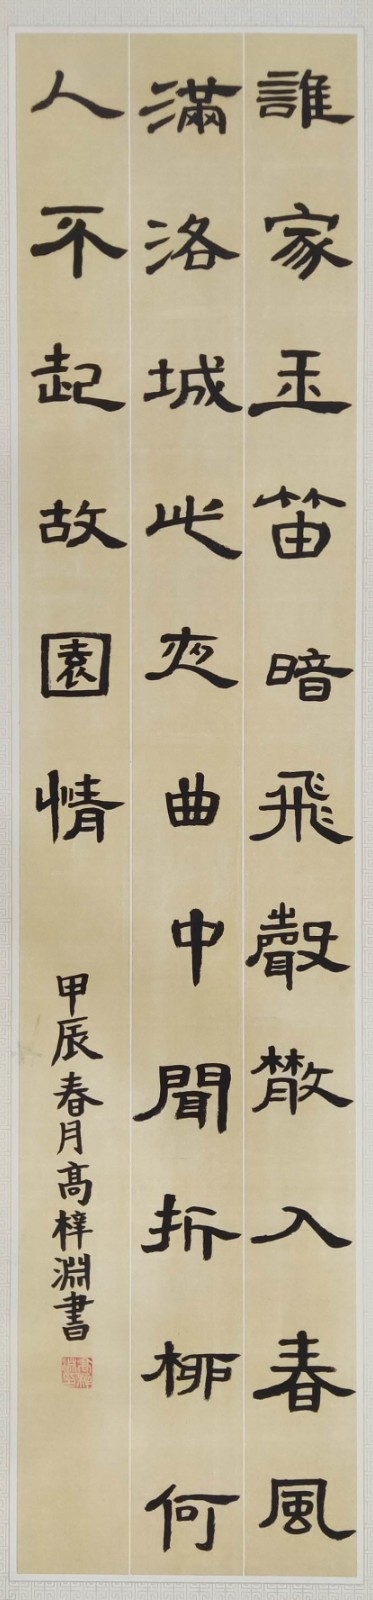 誰家玉笛暗飛聲散入春風
滿洛城此夜曲中聞折柳何
人不起故園情
甲辰春月高梓淵書